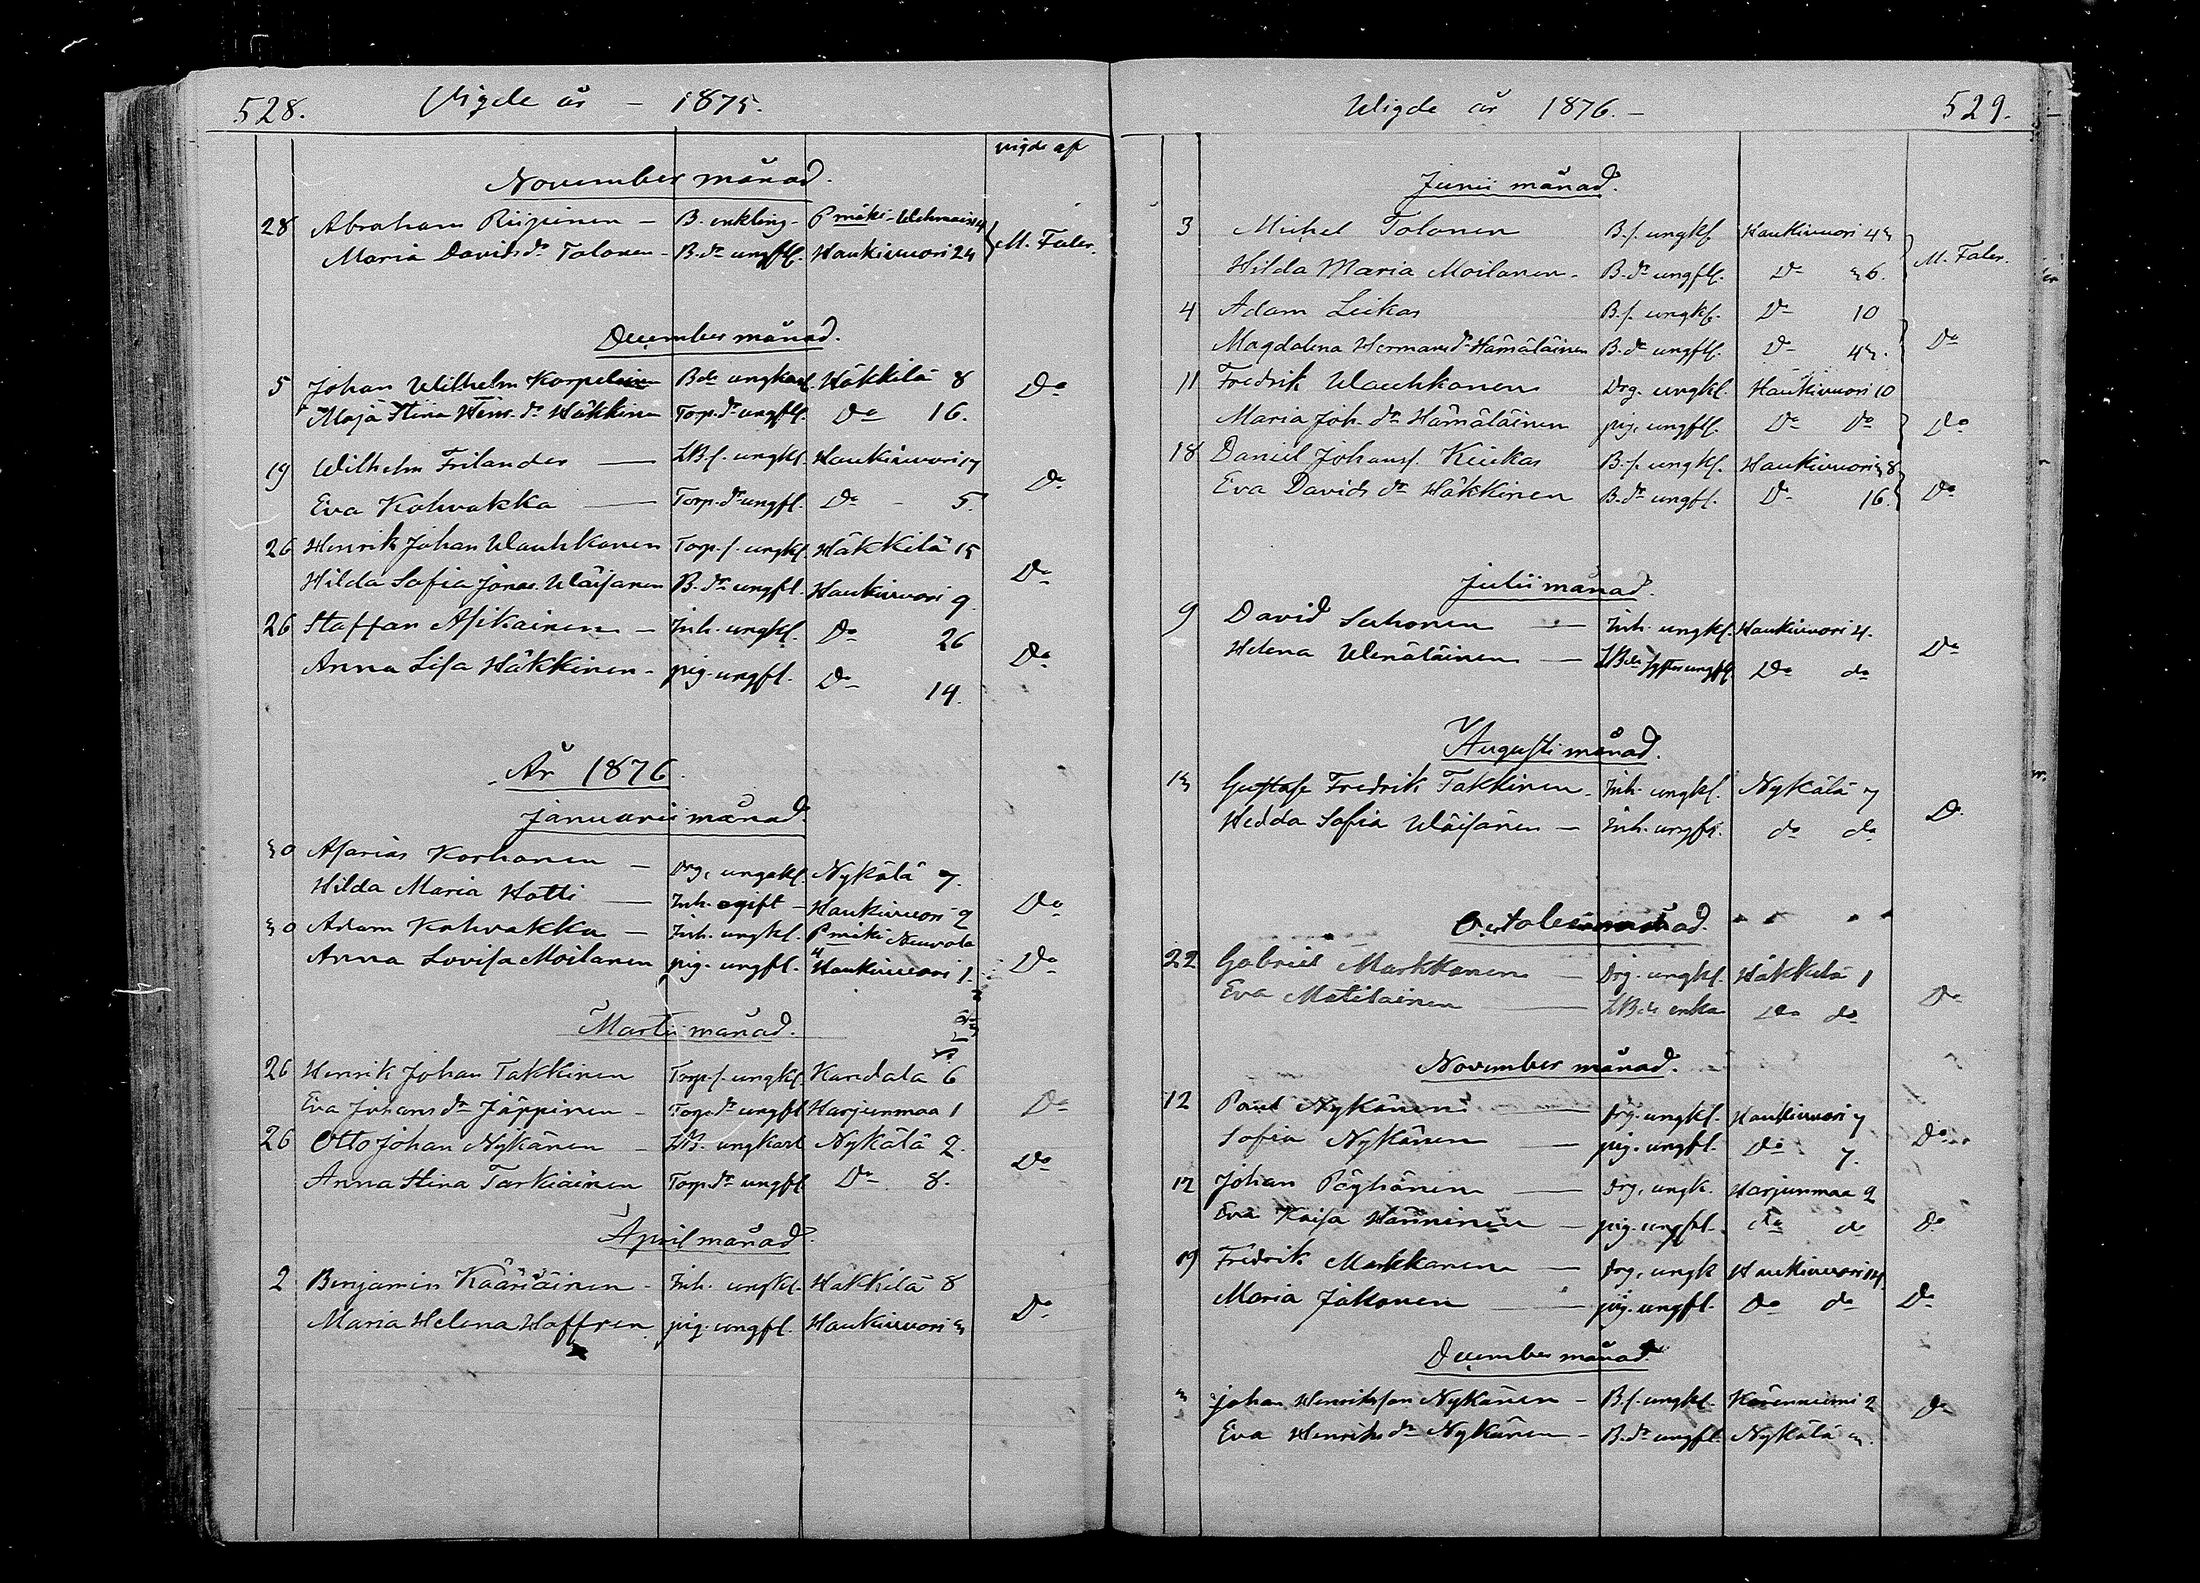 528. Vigde år – 1875.
vigde af
November månad.
28 Abraham Riipinen – B. enkling – P mäki – Wehmais 4
Maria Davids dr Tolonen – B. dr ungflf. Haukivuori 24 M. Faler.
December månad.
5 Johan Wilhelm Korpelainen Bde ungkarl. Häkkilä 8 Do
Maja Stina Hens. dr Häkkinen Torp. dr ungflf. Do 16.
19 Wilhelm Frilander — LB. f. ungkl. Haukivuori 17
Eva Kohvakka — Torp. dr ungfl. Do – 5. Do
26 Henrik Johan Wauhkonen Torp. f. ungkf. Häkkilä 15
Hilda Sofia Jönes. Wäisänen B. dr ungfl. Haukivuori 9. Do
26 Staffan Asikainen — Inh. ungkl. Do 26
Anna Lisa Häkkinen – pig. ungfl. Do 14. Do
År 1876.
Januarii månad.
30 Asarias Korhonen — Drg. ungkl. Nykälä 7.
Hilda Maria Hotti — Inh. ogift – Haukivuori 2 Do
30 Adam Kohvakka — Inh. ungkl. P mäki Neuvola
Anna Lovisa Moilanen pig. ungfl. Haukivuori 1. Do
Martii månad.
26 Henrik Johan Takkinen Torp. f. ungkf. Kandala 6
Eva Johans dr Jäppinen – Torp. dr ungfl Harjunmaa 1 Do
26 Otto Johan Nykänen – LB. ungkarl Nykälä 2.
Anna Stina Tarkiainen Torp. dr ungfl Do 8. Do
April månad.
2 Benjamin Kääriäinen – Inh. ungkl. Häkkilä 8
Maria Helena Haffren pig. ungfl. Haukivuori 3 Do
Wigde år 1876. – 529.
Junii månad.
3 Michel Tolonen B. f. ungkf. Haukivuori 43
Hilda Maria Moilanen – B. dr ungflf. Do 36. M. Faler.
4 Adam Leikas B. f. ungkf. Do 10
Magdalena Hermans dr Hämäläinen B. dr ungflf. Do 43. Do
11 Fredrik Wauhkonen Drg. ungkl. Haukivuori 10
Maria Joh. dr Hämäläinen pig. ungflf. Do Do Do
18 Daniel Johansf. Kiukas B. f. ungkf. Haukivuori 38
Eva Davids dr Häkkinen B. dr ungfl. Do 16. Do
Julii månad.
9 David Suhonen — Inh. ungkf. Haukivuori 4.
Helena Wenäläinen — LBde syster ungfl Do do Do
Augusti månad.
13 Gustaf Fredrik Takkinen – Inh. ungkl. Nykälä 7
Hedda Sofia Wäisänen — Inh. ungfl. do do D.
October månad.
22 Gabriel Markkanen — Drg. ungkl. Häkkilä 1
Eva Matilainen — LBde enka Do do Do
November månad.
12 Paul Nykänen — drg. ungkl. Haukivuori 7
Sofia Nykänen — pig. ungfl. Do 7. Do
12 Johan Pöyhönen — drg. ungk. Harjunmaa 2
Eva Kaisa Hänninen — pig. ungfl. do do Do
19 Fredrik Markkanen — drg. ungk Haukivuori 14
Maria Jakonen — pig. ungfl. Do do Do
December månad.
3 Johan Henriksson Nykänen – B. f. ungkl. Käienniemi 2
Eva Henriks dr Nykänen – B. dr ungfl. Nykälä 3. Do